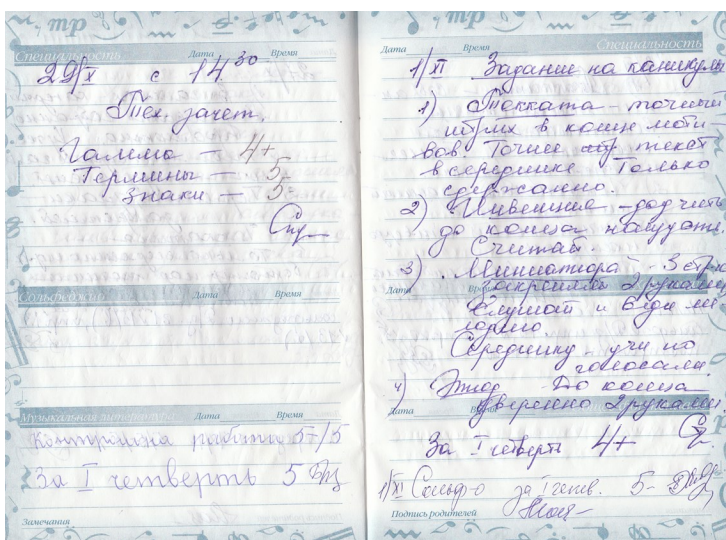 Специальность Дата Время
29/X с 14 30
Тех. зачет.
Гаммы — 4+
Термины — 5-
Знаки — 5-
Сольфеджио Дата Время
Музыкальная литература Дата Время
Контрольная работа 5-/5
За I четверть 5
Замечания
Дата Время Специальность
1/XI Задание на каникулы
1) Токката - точнее
штрих в конце моти-
вов. Точнее текст
в серединке Только
сдержанно.
2) Инвенция - доучить
до конца наизусть.
Считай.
3) Миниатюра - 3 стр.
Дата Время
закрепляй 2 руками
Слушай и веди ме-
лодию
Серединку учи по
голосам.
4) Этюд до конца
Дата Время
уверенно 2 руками
За I четверть 4+
1/XI Сольф-о за I четв. 5-
Подпись родителей